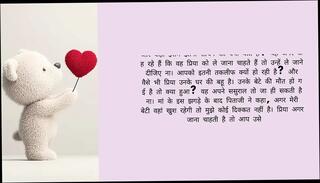 ह रहे हैं कि वह प्रिया को ले जाना चाहते हैं तो उन्हें ले जाने
दीजिए ना। आपको इतनी तकलीफ क्यों हो रही है? और
वैसे भी प्रिया उनके घर की बहू है। उनके बेटे की मौत हो ग
ई है तो क्या हुआ? वह अपने ससुराल तो जा ही सकती है
ना। मां के इस झगड़े के बाद पिताजी ने कहा, अगर मेरी
बेटी वहां खुश रहेगी तो मुझे कोई दिक्कत नहीं है। प्रिया अगर
जाना चाहती है तो आप उसे